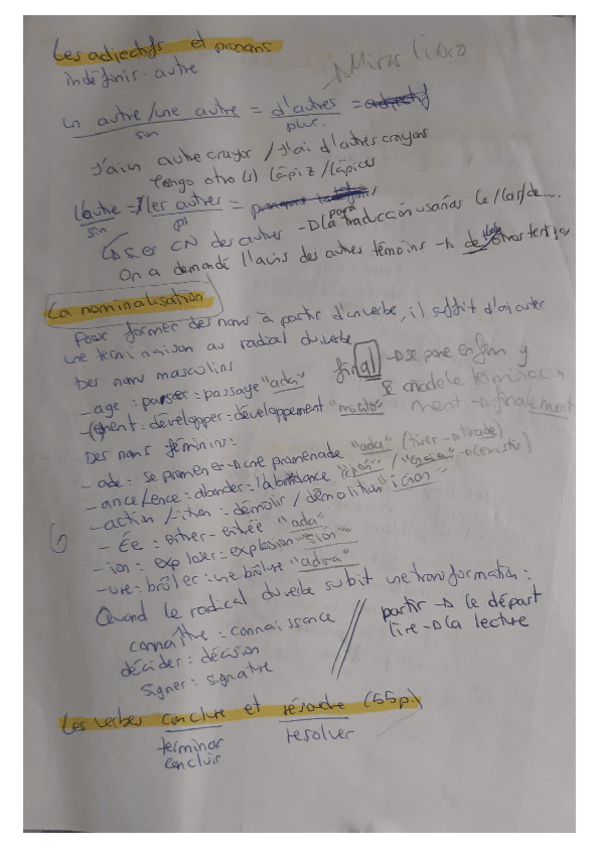 Les adjectifs et pronoms
indéfinis: autre
Mirar libro
un autre/une autre = d'autres =
sin plur.
J'ai un autre crayon / J'ai d'autres crayons
Tengo otro(s) lápiz/lápices
l'autre = les autres =
sin pl
Si es CN des autres para la traducción usarías de/las/de...
On a demandé l'avis des autres témoins
La nominalisation
Pour former des noms à partir d'un verbe, il suffit d'ajouter
une terminaison au radical du verbe
Des noms masculins
-age: passer: passage "ada"
-(e)ment: développer: développement "miento"
final se pone en fem y
se añade terminac
ment → finalement
Des noms féminins:
-ade: se promener → une promenade "ada" (tirer → tirade)
-ance/ence: abonder: l'abondance
-ation/ition: démolir/démolition "ición"
-ée: entrer-entrée "ada"
-ion: exploser: explosion "sión"
-ure: brûler: une brûlure "adura"
Quand le radical du verbe subit une transformation:
connaître: connaissance
décider: décision
signer: signature
partir → le départ
lire → la lecture
Les verbes conclure et résoudre (55p.)
terminar resolver
concluir